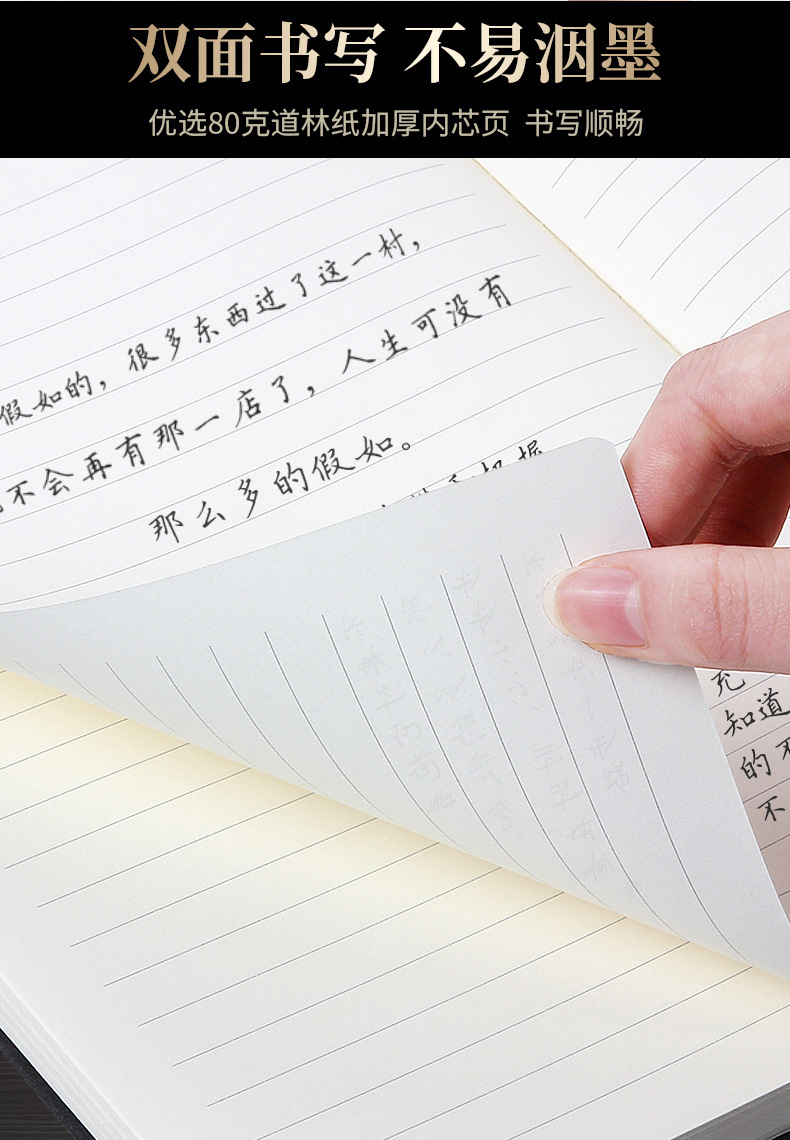 双面书写 不易洇墨
优选80克道林纸加厚内芯页 书写顺畅
假如的，很多东西过了这一村，
不会再有那一店了，人生可没有
那么多的假如。
充
知道
的不
不